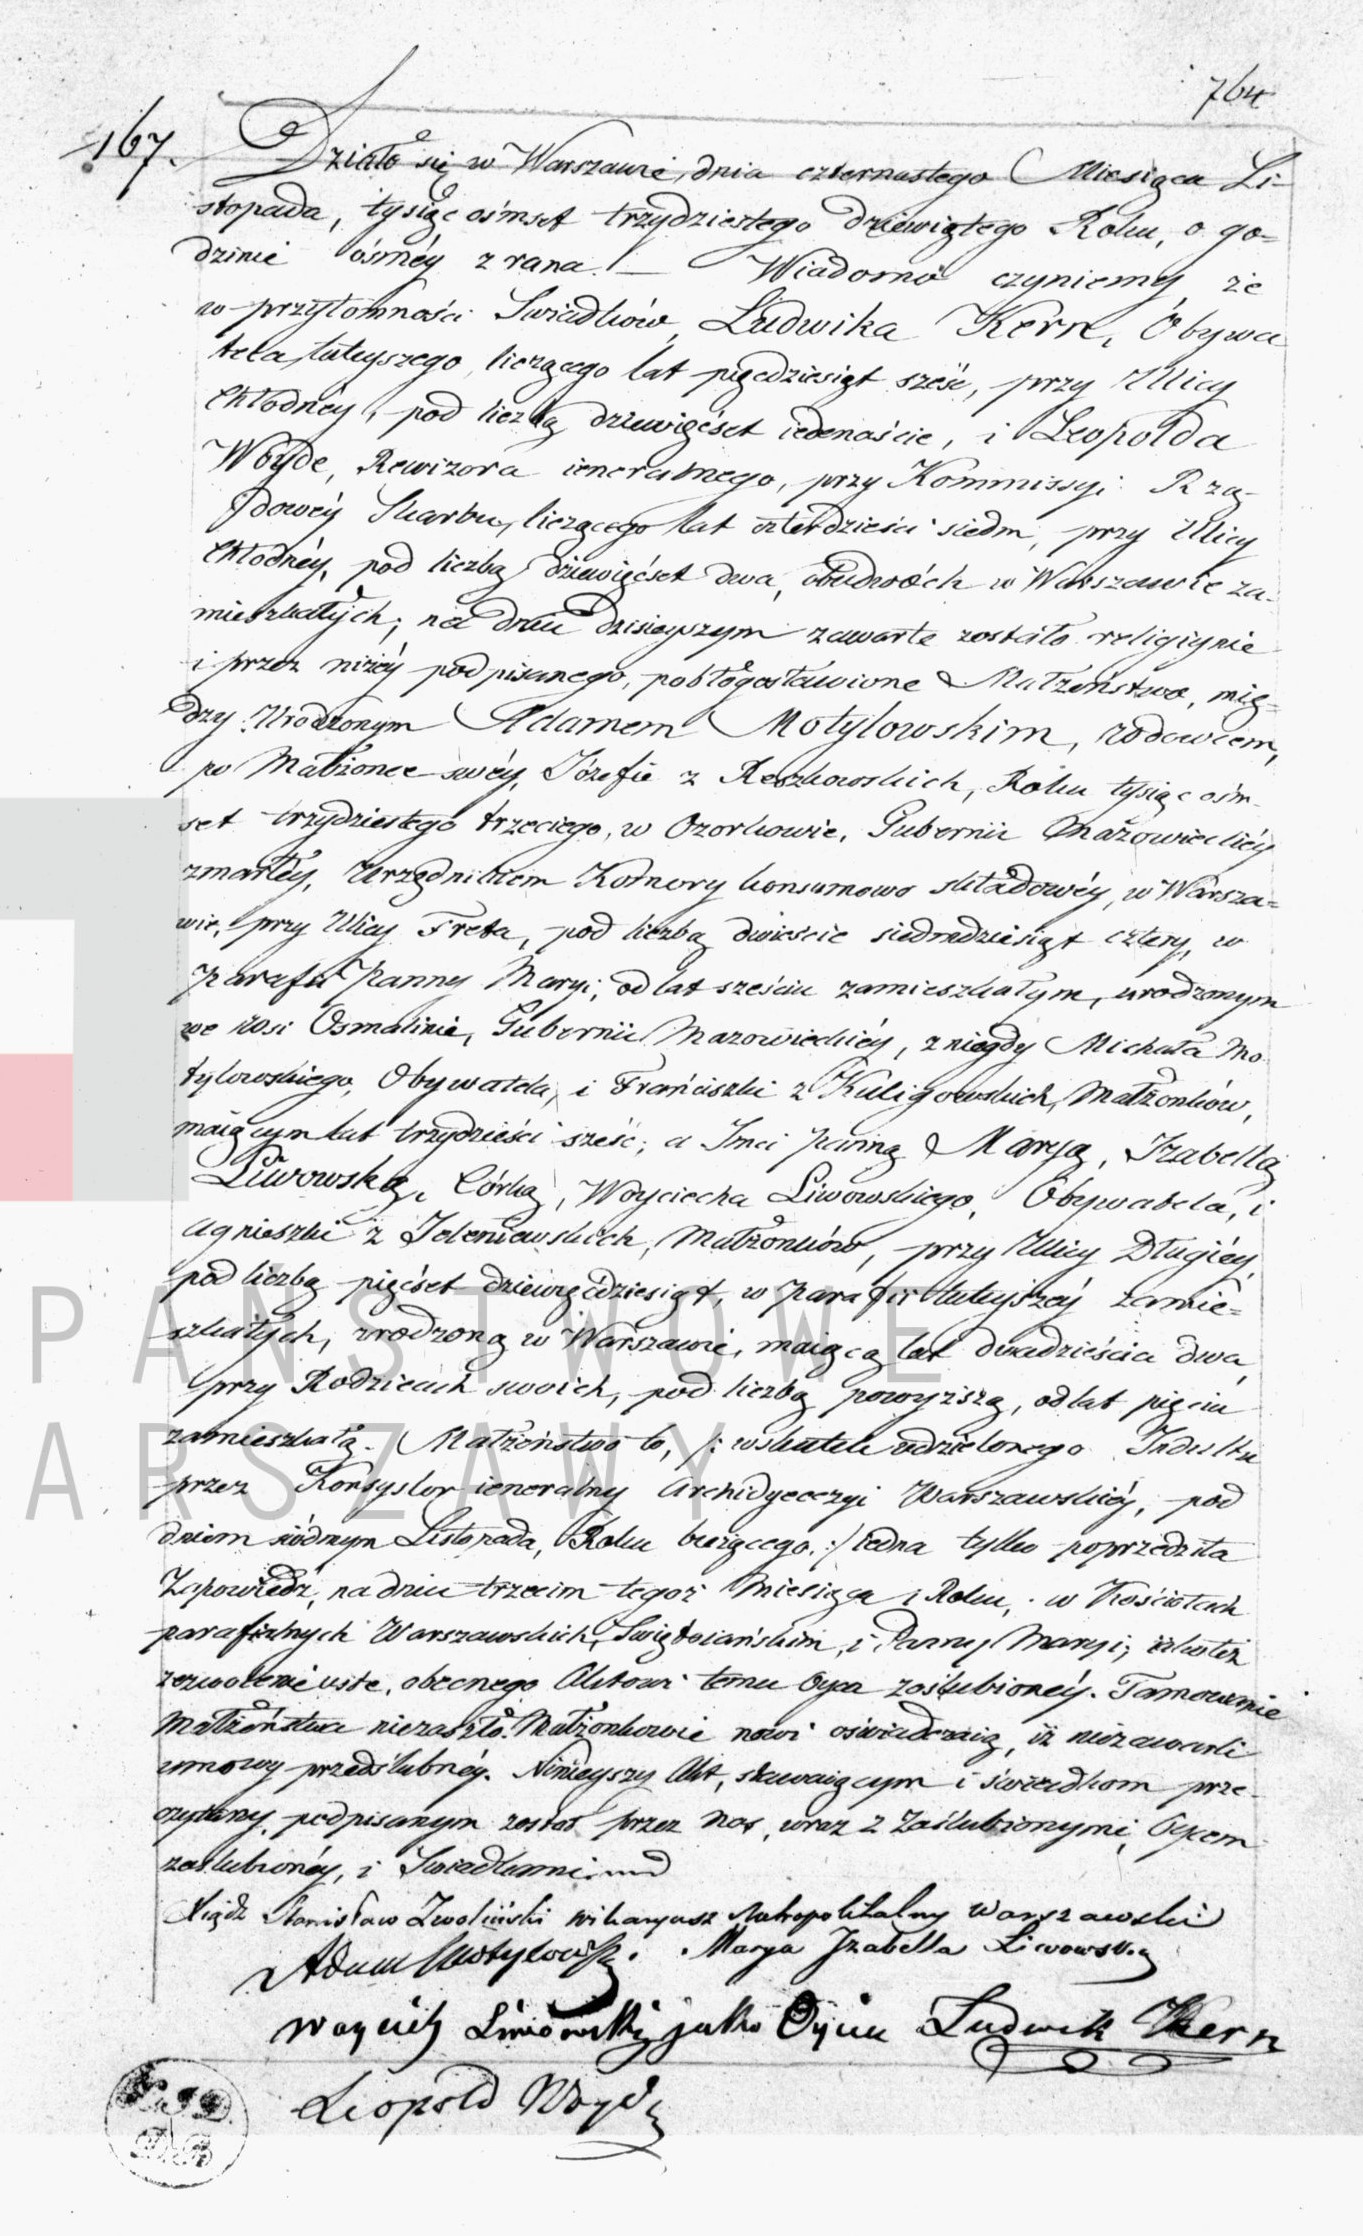 764
167. Działo się w Warszawie, dnia czternastego Miesiąca Li-
stopada, tysiąc ośmset trzydziestego dziewiątego Roku, o go=
dzinie ósméy z rana. — Wiadomo czyniemy że
w przytomności Swiadków, Ludwika Kern, Obywa
tela tuteyszego, liczącego lat pięćdziesiąt sześć, przy Ulicy
Chłodnéy, pod liczbą dziewięćset iedenaście, i Leopolda
Woyde, Rewizora ieneralnego, przy Kommissyi Rzą-
dowéy Skarbu, liczącego lat czterdzieści siedm, przy Ulicy
Chłodnéy, pod liczbą dziewięćset dwa, obudwóch w Warszawie za-
mieszkałych; na dniu dzisieyszym zawarte zostało religiynie
i przez niżéy podpisanego, pobłogosławione Małżeństwo, mię-
dzy Urodzonym Adamem Motylowskim, wdowcem,
po Małżonce swéy, Józefie z Reszkowskich, Roku tysiąc ośm-
set trzydziestego trzeciego, w Ozorkowie, Gubernii Mazowieckiéy
zmarłéy, Urzędnikiem Komory konsumowo składowéy, w Warsza=
wie, przy Ulicy Freta, pod liczbą dwieście siedmdziesiąt cztery, w
Parafii Panny Maryi, od lat sześciu zamieszkałym, urodzonym
we wsi Osmalinie, Gubernii Mazowieckiéy, z niegdy Michała Mo
tylowskiego, Obywatela, i Franciszki z Kuligowskich, Małżonków,
maiącym lat trzydzieści sześć; a Imci Panną Maryą, Izabellą
Liwowską, Córką, Woyciecha Liwowskiego, Obywatela, i
Agnieszki z Jeleniewskich, Małżonków, przy Ulicy Długiéy,
pod liczbą pięćset dziewięćdziesiąt, w Parafii tuteyszéy zamie=
szkałych, urodzoną w Warszawie, maiącą lat dwadzieścia dwa,
przy Rodzicach swoich, pod liczbą powyższą, od lat pięciu
zamieszkałą. Małżeństwo to, /: wskutek udzielonego Indultu
przez Konsystor ieneralny Archidyecezyi Warszawskiéy, pod
dniem siódmym Listopada, Roku bieżącego, :/ iedna tylko poprzedziła
Zapowiedź, na dniu trzecim tegoż Miesiąca i Roku, w Kościołach
parafialnych Warszawskich, Swiętoiańskim, i Panny Maryi; iakoteż
zezwolenie ustne, obecnego Aktowi temu Oyca zaślubionéy. Tamowanie
Małżeństwa niezaszło. Małżonkowie nowi oświadczaią, iż niezawarli
umowy przedślubnéy. Ninieyszy Akt, stawaiącym i świadkom prze-
czytany, podpisanym został przez Nas, wraz z Zaślubionymi, Oycem
zaślubionéy, i Swiadkami.
Xiądz Stanisław Zwoliński wikaryusz Metropolitalny Warszawski
Adam Motylowski. Marya Izabella Liwowska
Woyciech Liwowski jako Oyciec Ludwik Kern
Leopold Woyde
PAŃSTWOWE
ARSZAWY